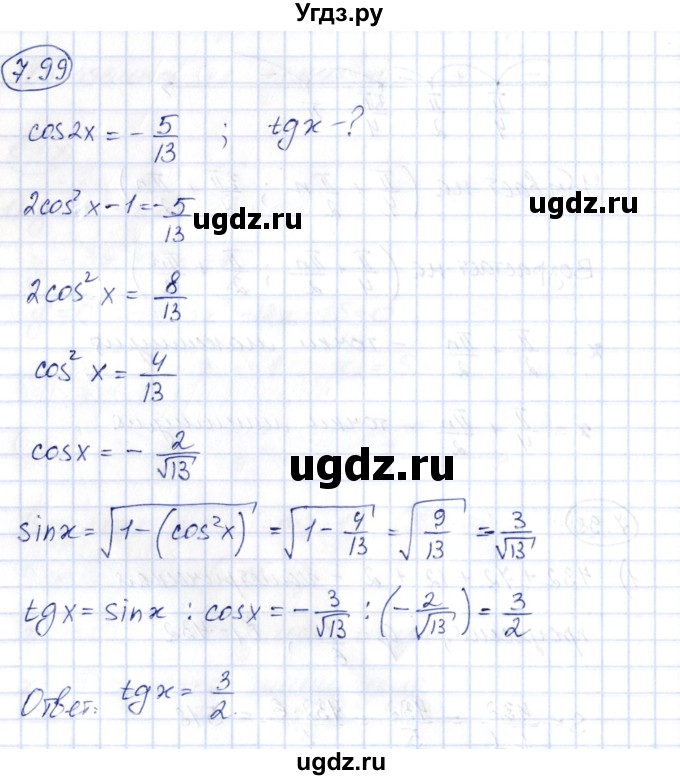 Угдз.ру
7.99
cos2x = - 5/13 ; tgx - ?
2cos² x - 1 = - 5/13
ugdz.ru ugdz.ru
2cos² x = 8/13
cos² x = 4/13
cosx = - 2/√13
ugdz.ru
sinx = √1-(cos²x) = √1 - 4/13 = √9/13 = 3/√13
tgx = sinx : cosx = - 3/√13 : (- 2/√13) = 3/2
Ответ: tgx = 3/2.
ugdz.ru
ugdz.ru